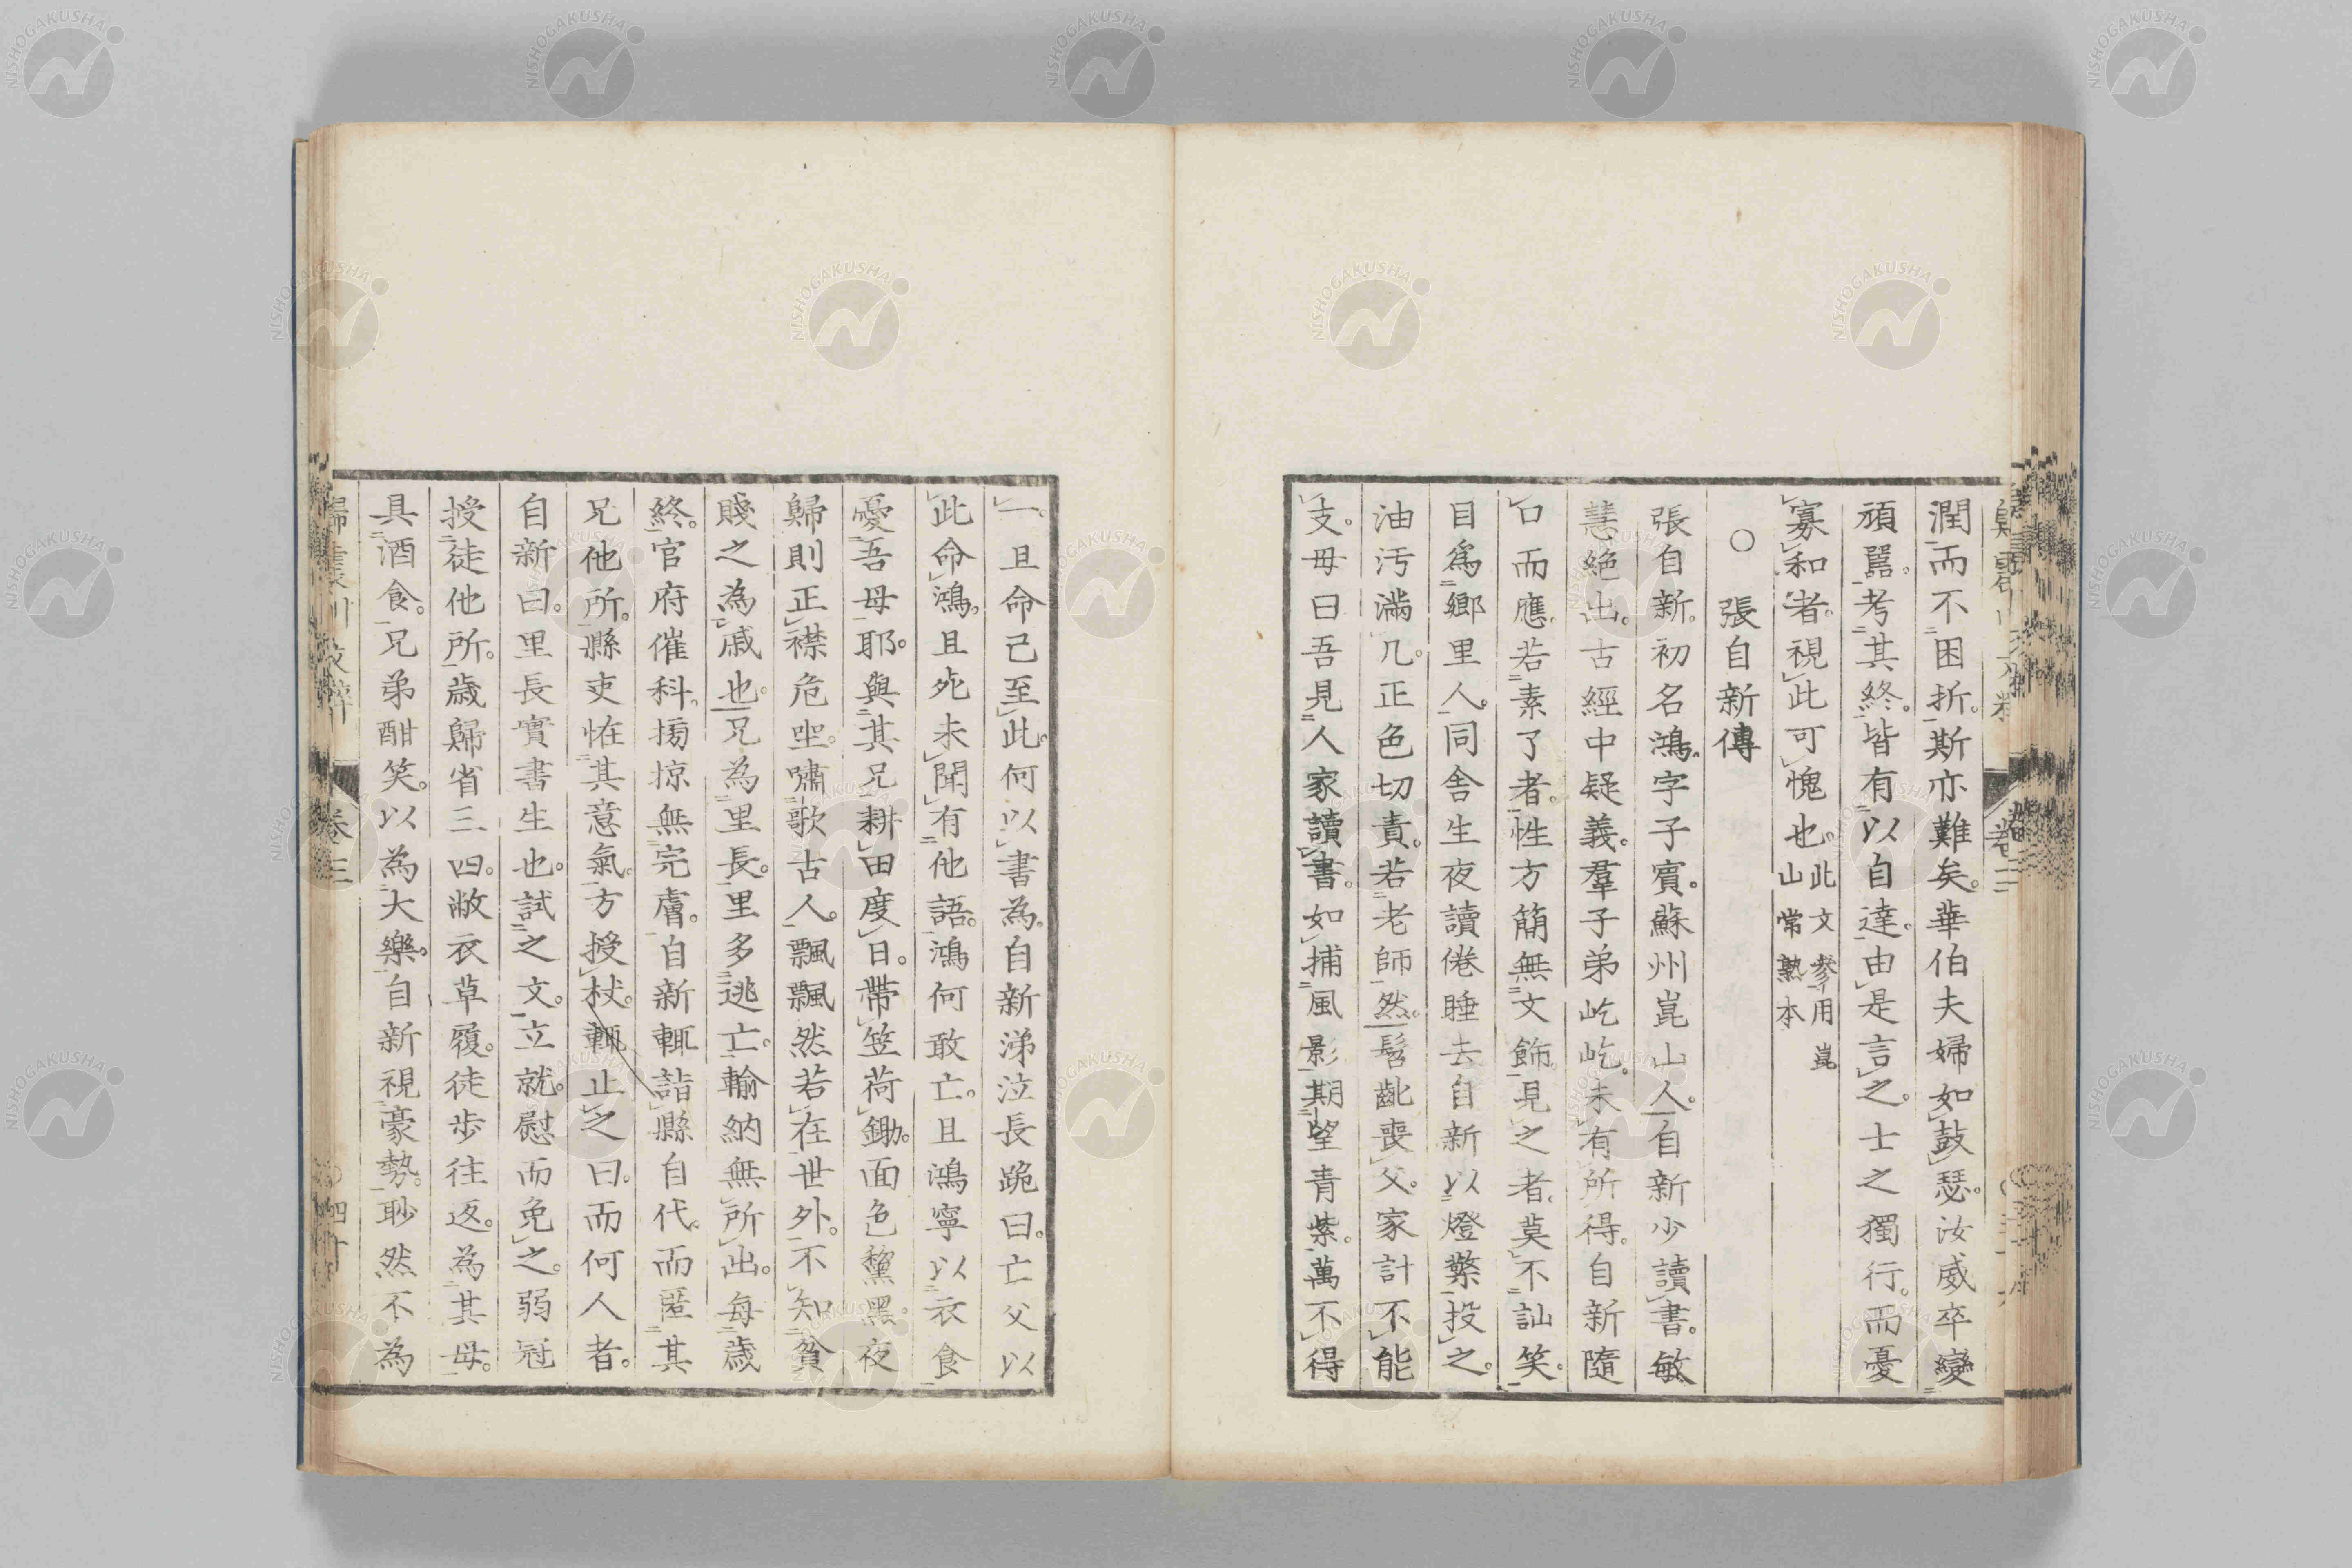 潤而不困折。斯亦難矣。華伯夫婦如鼓瑟。汝威卒變
頑嚚。考其終。皆有以自達。由是言之。士之獨行。而憂
寡和者。視此可愧也。此文參用崑山常熟本
○張自新傳
張自新。初名鴻。字子賓。蘇州崑山人。自新少讀書。敏
慧絕出。古經中疑義。羣子弟屹屹。未有所得。自新隨
口而應。若素了者。性方簡無文飾。見之者。莫不訕笑。
目爲鄉里人。同舍生夜讀倦睡去自新以燈檠投之。
油汚滿几。正色切責。若老師然。髫齔喪父。家計不能
支。母曰吾見人家讀書。如捕風影期望青紫。萬不得
一。且命已至此。何以書為。自新涕泣長跪曰。亡父以
此命鴻。且死未聞有他語。鴻何敢亡。且鴻寧以衣食
憂吾母耶。與其兄耕田度日。帶笠荷鋤。面色黧黑。夜
歸則正襟危坐。嘯歌古人。飄飄然若在世外。不知貧
賤之為戚也。兄為里長。里多逃亡。輸納無所出。每歲
終。官府催科。搒掠無完膚。自新輒詣縣自代。而匿其
兄他所。縣吏恠其意氣。方授杖。輒止之曰。而何人者。
自新曰。里長實書生也。試之文。立就。慰而免之。弱冠
授徒他所。歲歸省三四。敝衣草履。徒步往返。為其母。
具酒食。兄弟酣笑。以為大樂。自新視豪勢。眇然不為
卷三